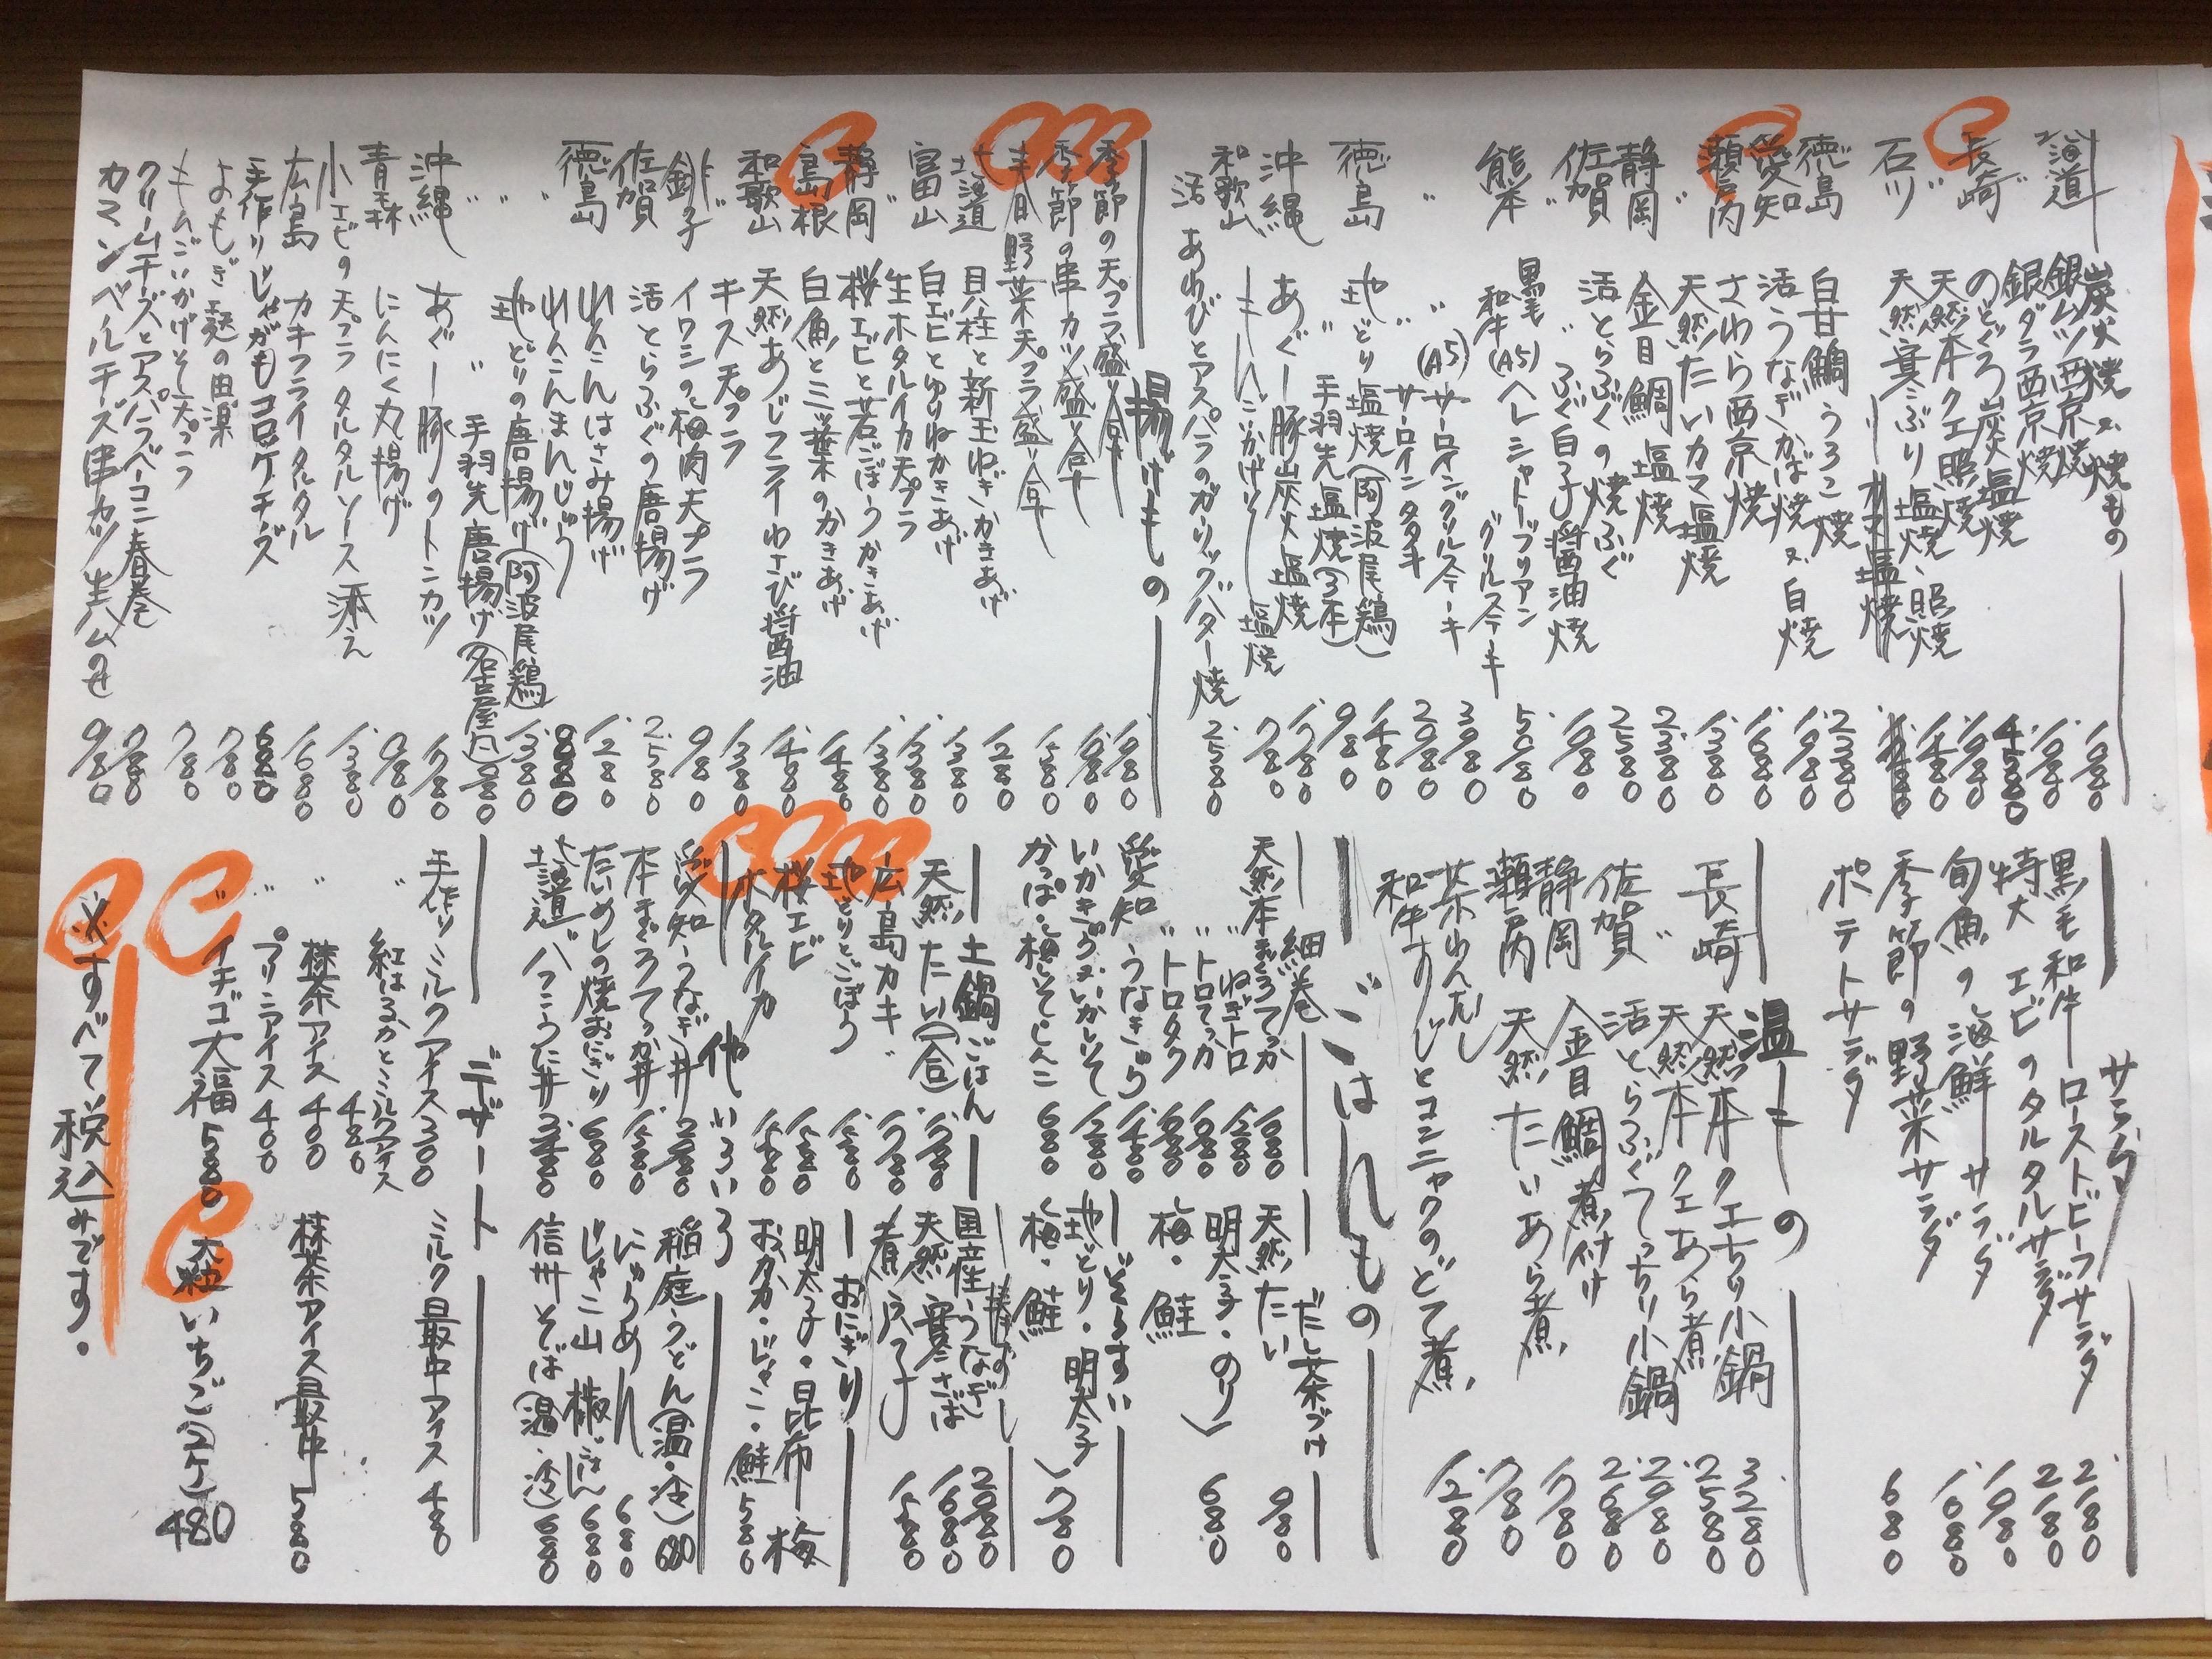 炭火焼又焼もの
北海道 銀ムツ西京焼 1,980
銀ダラ西京焼 1,980
長崎 のどぐろ炭火塩焼 4,580
〃 天然本クエ照焼 1,980
石川 天然寒ぶり塩焼、照焼 1,480
〃 カマ塩焼
徳島 白甘鯛うろこ焼 2,380
愛知 活うなぎかば焼又白焼
さわら西京焼 1,680
瀬戸内 天然たいカマ塩焼 1,380
静岡 金目鯛塩焼 2,380
佐賀 活とらふぐの焼ふぐ 2,580
〃 〃 ふぐ白子醤油焼 1,980
熊本 黒毛和牛(A5)ヘレシャトーブリアングリルステーキ 5,980
〃 〃(A5)サーロイングリルステーキ 3,980
〃 サーロインタタキ 2,980
徳島 地どり塩焼(阿波尾鶏) 1,480
〃 手羽先塩焼(3本) 980
沖縄 あぐー豚炭火塩焼
和歌山 しんごいかげそ塩焼 780
活あわびとアスパラのガーリックバター焼 2,580
揚げもの
季節の天プラ盛り合せ 1,980
季節の串カツ盛り合せ
春野菜天プラ盛り合せ 1,580
北海道 貝柱と新玉ねぎかきあげ 1,280
富山 白エビとゆりねかきあげ 1,380
〃 生ホタルイカ天プラ 1,380
静岡 桜エビと若ごぼうかきあげ 1,380
島根 白魚と三ツ葉のかきあげ 1,480
和歌山 天然あじフライわさび醤油 1,480
キス天プラ 1,380
銚子 イワシの梅肉天プラ 980
佐賀 活とらふぐの唐揚げ 2,580
れんこんはさみ揚げ 1,280
れんこんまんじゅう
徳島 地どりの唐揚げ(阿波尾鶏) 1,380
〃 〃 手羽先唐揚げ(名古屋風)
沖縄 あぐー豚のトンカツ 1,780
青森 にんにく丸揚げ 980
小エビの天プラタルタルソース添え 1,380
広島 カキフライタルタル 1,680
手作りじゃがもコロッケチーズ 680
よもぎ麩の田楽 780
もんごいかげそ天プラ 780
クリームチーズとアスパラベーコン春巻 780
カマンベールチーズ串カツ生ハムのせ 980
サラダ
黒毛和牛ローストビーフサラダ 2,180
特大エビのタルタルサラダ 2,180
旬魚の海鮮サラダ 1,980
季節の野菜サラダ 1,080
ポテトサラダ 680
温もの
長崎 天然本クエちり小鍋 3,280
〃 天然本クエあら煮 2,580
佐賀 活とらふぐてっちり小鍋
静岡 金目鯛煮付け
瀬戸内 天然たいあら煮 1,780
茶わんむし 780
和牛すじとコンニャクのどて煮 1,280
ごはんもの
細巻
天然本まぐろてっか
〃 ねぎトロ 1,280
〃 トロてっか
〃 トロタク
愛知 うなきゅう 1,480
いかきゅう又いかしそ 1,280
かっぱ・梅しそしんこ 680
だし茶づけ
天然たい 980
明太子・のり
梅・鮭 680
ぞうすい
地どり・明太子
梅・鮭 780
土鍋ごはん
天然たい(一合) 1,780
広島カキ 1,780
地どりとごぼう 1,580
桜エビ 1,580
ホタルイカ 1,580
棒すし
国産うなぎ 2,980
天然寒さば 1,680
煮穴子 1,580
おにぎり
明太子・昆布・梅
おかか・じゃこ・鮭 580
他いろいろ
愛知うなぎ丼 2,980
本まぐろてっか丼
たいめしの焼おにぎり 680
北海道バフンうに丼
稲庭うどん(温・冷) 680
にゅうめん 680
じゃこ山椒ごはん 680
信州そば(温・冷) 680
デザート
手作りミルクアイス 300
〃 紅はるかとミルクアイス 480
〃 抹茶アイス 400
〃 プリンアイス 400
〃 イチゴ大福 580
ミルク最中アイス 480
抹茶アイス最中 580
大粒いちご(2ケ) 480
※すべて税込みです。